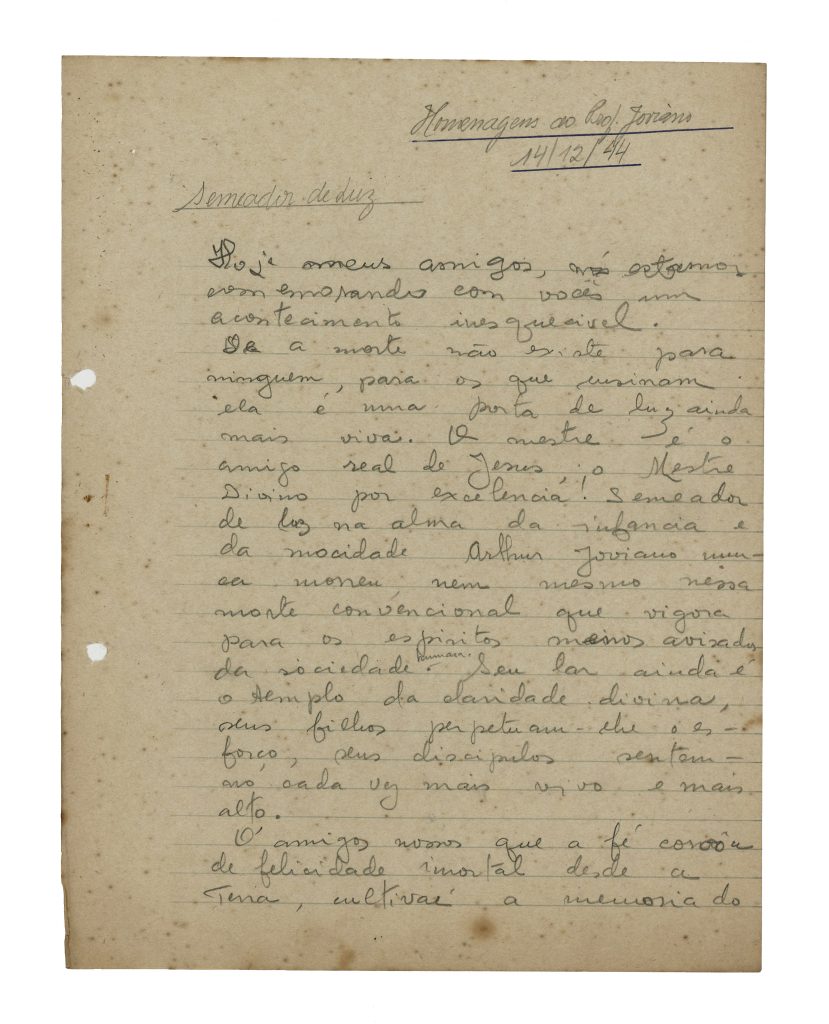 Homenagens ao Prof. Joviano
14/12/44
Semeador de Luz
Hoje meus amigos, nós estamos
comemorando com vocês um
acontecimento inesquecivel.
Se a morte não existe para
ninguem, para os que ensinam
ela é uma porta de luz ainda
mais viva. O mestre é o
amigo real de Jesus, o Mestre
Divino por excelencia! Semeador
de luz na alma da infancia e
da mocidade Arthur Joviano nun-
ca morreu nem mesmo nessa
morte convencional que vigora
para os espiritos menos avisados
da sociedade humana. Seu lar ainda é
o templo da claridade divina,
seus filhos perpetuam-lhe o es-
forço, seus discipulos sentem-
no cada vez mais vivo e mais
alto.
O' amigos nossos que a fé corôa
de felicidade imortal desde a
Terra, cultivae a memoria do